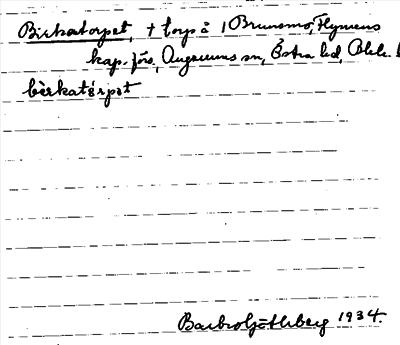 Birkatorpet, † torp å 1 Brunsmo, Flymens
kap. förs, Augerums sn, Östra hd, Blek. l
bèrkatórpət
Barbro Götlberg 1934.